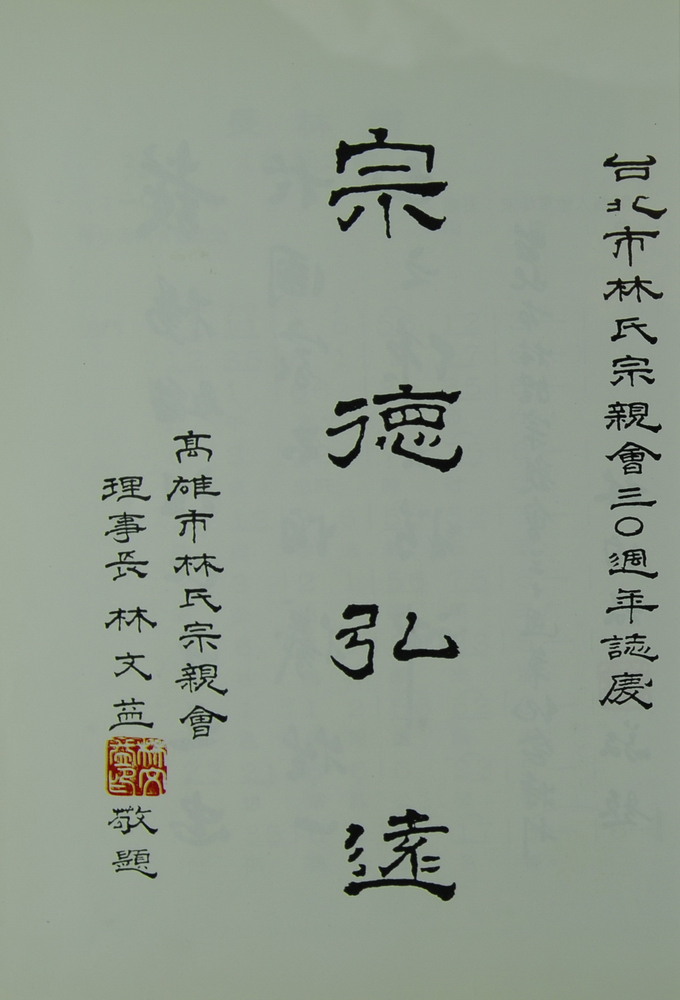 台北市林氏宗親會三〇週年誌慶
宗德弘遠
高雄市林氏宗親會
理事長 林文益 敬題
林文益印